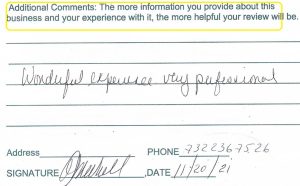 Additional Comments: The more information you provide about this
business and your experience with it, the more helpful your review will be.
Wonderful experience very professional
Address PHONE 7322367526
SIGNATURE ,DATE 11/20/21